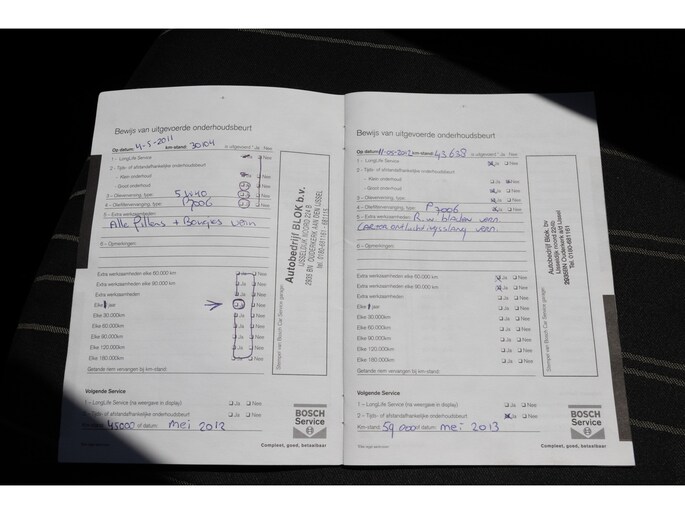 Bewijs van uitgevoerde onderhoudsbeurt
Op datum: 4-5-2011 km-stand: 30104 is uitgevoerd Ja Nee
1 – LongLife Service Ja Nee
2 – Tijds- of afstandafhankelijke onderhoudsbeurt
– Klein onderhoud Ja Nee
– Groot onderhoud Ja Nee
3 – Olieverversing, type: 5W40 Ja Nee
4 – Oliefiltervervanging, type: P7006 Ja Nee
5 – Extra werkzaamheden:
Alle Filters + Bougies vern
6 – Opmerkingen:
Extra werkzaamheden elke 60.000 km Ja Nee
Extra werkzaamheden elke 90.000 km Ja Nee
Extra werkzaamheden
Elke jaar Ja Nee
Elke 30.000km Ja Nee
Elke 60.000km Ja Nee
Elke 90.000km Ja Nee
Elke 120.000km Ja Nee
Elke 180.000km Ja Nee
Gelande item vervangen bij km-stand:
Stempel van Bosch Car Service garage:
Autobedrijf BLOK b.v.
IJSSELDIJK NOORD 224 B
2935 BN OUDERKERK AAN DEN IJSSEL
tel. 0180-681161 - 681115
Volgende Service
1 – LongLife Service (na weergave in display) Ja Nee
2 – Tijds- of afstandafhankelijke onderhoudsbeurt Ja Nee
Km-stand: 45000 of datum: mei 2012
BOSCH
Service
Compleet, goed, betaalbaar
Bewijs van uitgevoerde onderhoudsbeurt
Op datum: 11-05-2012 km-stand: 43638 is uitgevoerd Ja Nee
1 – LongLife Service Ja Nee
2 – Tijds- of afstandafhankelijke onderhoudsbeurt
– Klein onderhoud Ja Nee
– Groot onderhoud Ja Nee
3 – Olieverversing, type: Ja Nee
4 – Oliefiltervervanging, type: P7006 Ja Nee
5 – Extra werkzaamheden: Ruw bladen vern.
Carterontluchtingsslang vern.
6 – Opmerkingen:
Extra werkzaamheden elke 60.000 km Ja Nee
Extra werkzaamheden elke 90.000 km Ja Nee
Extra werkzaamheden
Elke jaar Ja Nee
Elke 30.000km Ja Nee
Elke 60.000km Ja Nee
Elke 90.000km Ja Nee
Elke 120.000km Ja Nee
Elke 180.000km Ja Nee
Gelande item vervangen bij km-stand:
Stempel van Bosch Car Service garage:
Autobedrijf Blok bv
IJsseldijk noord 224b
2935BN Ouderkerk a/d IJssel
Tel. 0180-681161
Volgende Service
1 – LongLife Service (na weergave in display) Ja Nee
2 – Tijds- of afstandafhankelijke onderhoudsbeurt Ja Nee
Km-stand: 59.000 of datum: mei 2013
BOSCH
Service
Compleet, goed, betaalbaar